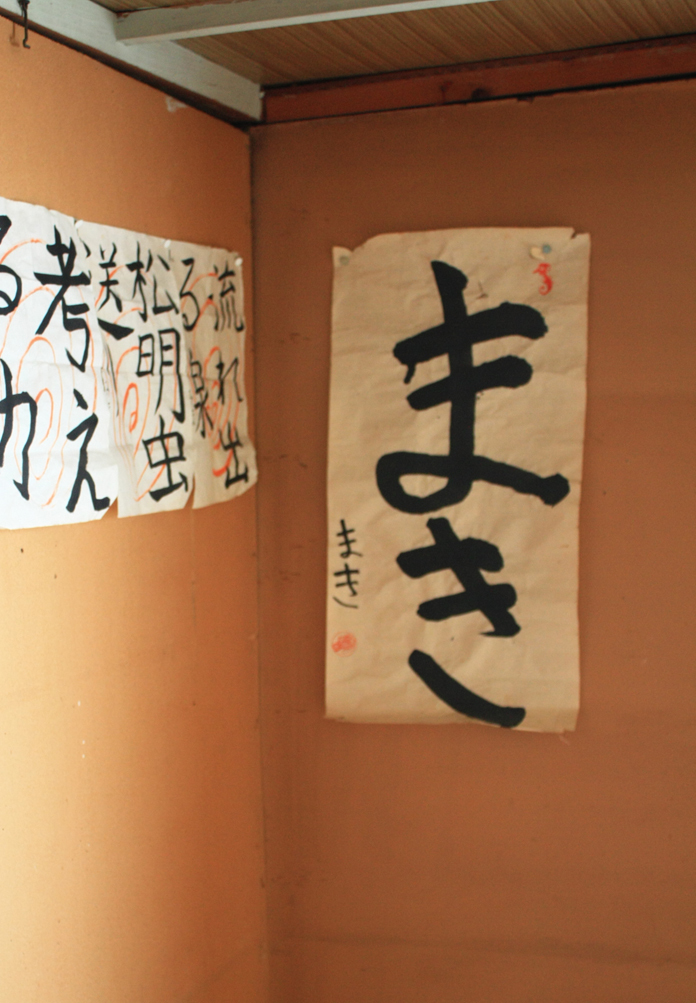 まき
まき
流れ出
る
松明虫
送
考え
る力